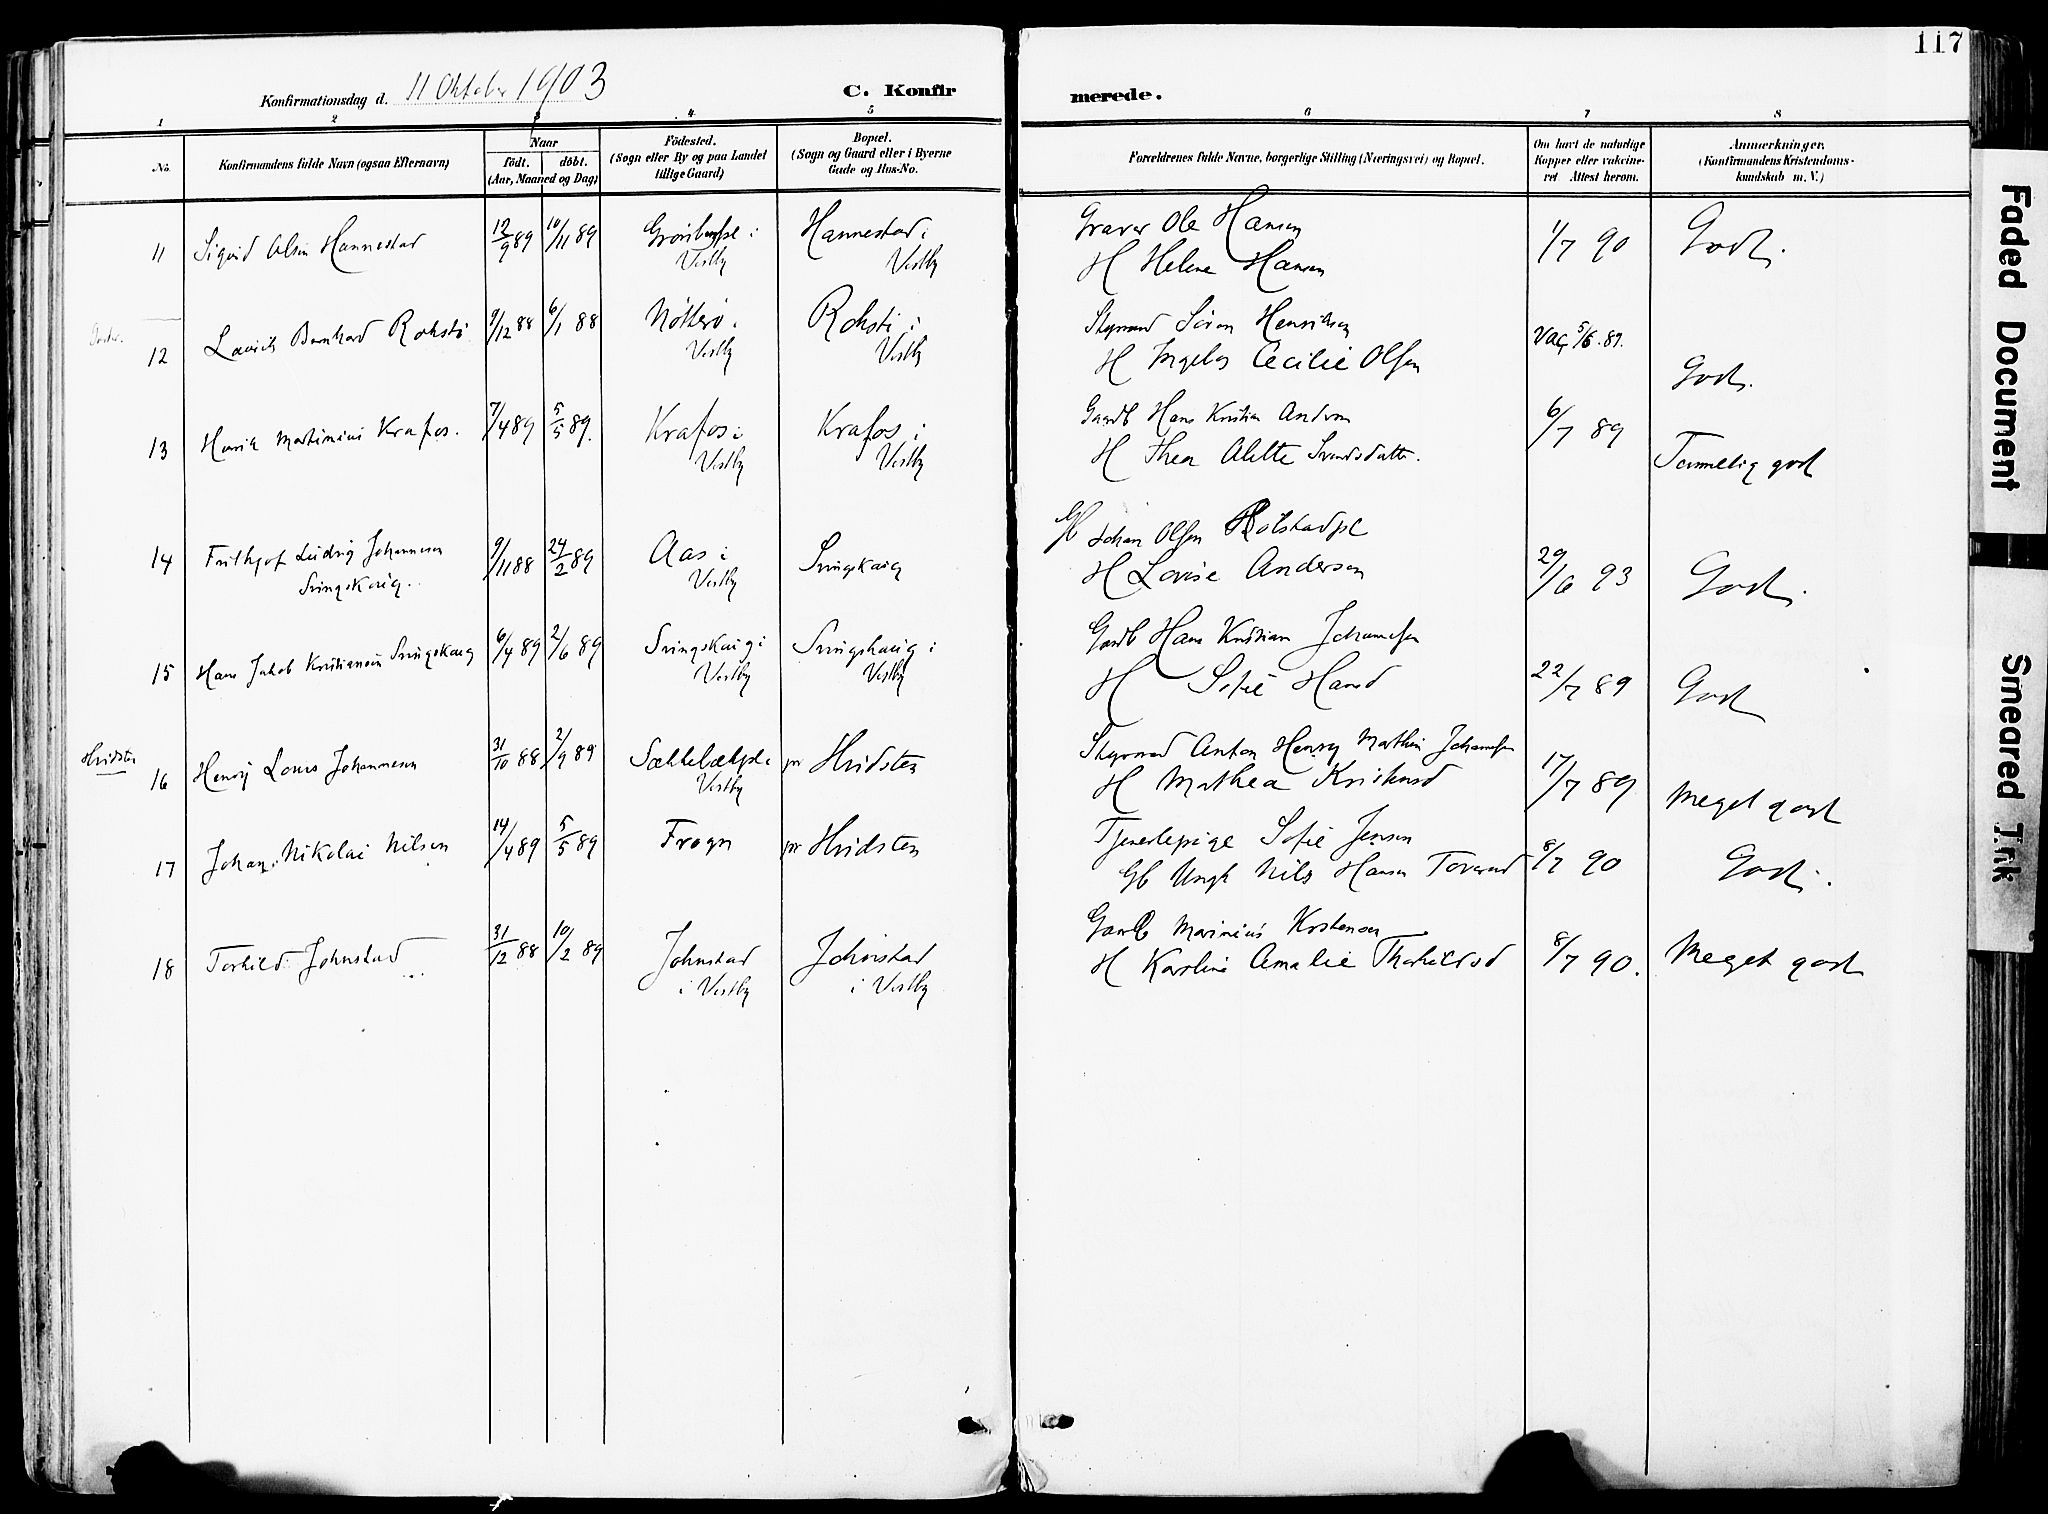 117
Konfirmationsdag d. 11 Oktober 1903
C. Konfir
merede.
1 2 3 4 5 6 7 8
No.
Konfirmandens fulde Navn (ogsaa Efternavn)
Naar
födt. döbt.
(Aar, Maaned og Dag)
Födested.
(Sogn eller By og paa Landet
tillige Gaard)
Bopæl.
(Sogn og Gaard eller i Byerne
Gade og Hus-No.
Forældrenes fulde Navne, borgerlige Stilling (Næringsvei) og Bopæl.
Om havt de naturlige
Kopper eller vakcine-
ret Attest herom.
Anmærkninger.
(Konfirmandens Kristendoms-
kundskab m. V.)
11 Sigurd Olsen Hannestad 12/9 89 10/11 89 i Hannestad i Graver Ole Hansen 1/7 90 Godt.
Vestby Vestby H Helene Hansen
12 Bernhard Roksti 9/12 88 6/1 88 i Roksti i Styrmand Sören Henriksen Vac 5/6. 89.
Vestby Vestby H Ingeborg Cecilie Olsen Godt.
13 Martinius Krafos. 7/4 89 5/5 89. Krafos i Krafos i Gaardb Hans Kristian Andersen 6/7 89
Vestby Vestby H Thea Alette Svendsdatter. Temmelig godt
14 Frithjof Ludvig Johannesen 9/11 88 24/2 89 Aas i Sringskaug Johan Olsen 29/6 93 Godt.
Sringskaug. Vestby H Lovise Andersen
15 Hans Jakob Kristiansen Sringskaug 6/4 89 2/6 89 Sringskaug i Sringskaug i Gaardb Hans Kristian Johannesen 22/7 89 Godt
Vestby Vestby H Sofie Hansd
Hvidsten
16 Henry Louis Johannesen 31/10 88 2/9 89 pr Hvidsten Styrmand Anton Henry Mathias Johannesen 17/7 89 Meget godt
Vestby H Mathea Kristensd
17 Johan Nikolai Nilsen 14/4 89 5/5 89 Frogn pr Hvidsten Tjenestepige Sofie Jensen 8/7 90 Godt.
Ungk Nils Hansen
18 Torkild Johnstad 31/12 88 10/2 89 Johnstad Johnstad Gaardb Marinius Kristensen 8/7 90. Meget godt
i Vestby i Vestby H Karoline Amalie Thorkildsd
Faded Document
Smeared Ink